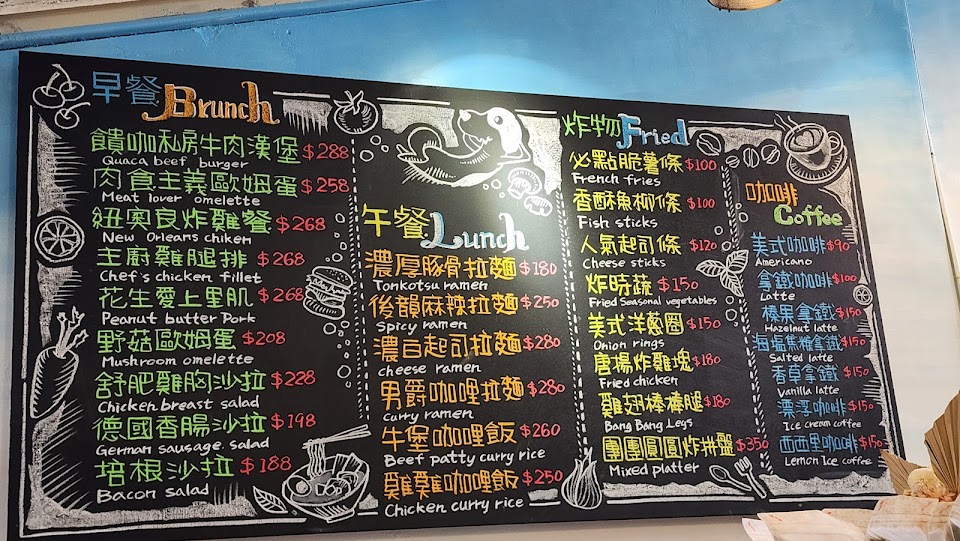 早餐 Brunch
饋咖私房牛肉漢堡 $288
Quaca beef burger
肉食主義歐姆蛋 $258
Meat lover omelette
紐奧良炸雞餐 $268
New Orleans chiken
主廚雞腿排 $268
Chef's chicken fillet
花生愛上里肌 $268
Peanut butter Pork
野菇歐姆蛋 $208
Mushroom omelette
舒肥雞胸沙拉 $228
Chicken breast salad
德國香腸沙拉 $198
German sausage salad
培根沙拉 $188
Bacon salad
午餐 Lunch
濃厚豚骨拉麵 $180
Tonkotsu ramen
後韻麻辣拉麵 $250
Spicy ramen
濃白起司拉麵 $280
cheese ramen
男爵咖哩拉麵 $280
Curry ramen
牛堡咖哩飯 $260
Beef patty curry rice
雞雞咖哩飯 $250
Chicken curry rice
炸物 Fried
必點脆薯條 $100
French fries
香酥魚柳條 $100
Fish sticks
人氣起司條 $120
Cheese sticks
炸時蔬 $150
Fried Seasonal vegetables
美式洋蔥圈 $150
Onion rings
唐揚炸雞塊 $180
Fried chicken
雞翅棒棒腿 $180
Bang Bang Legs
團團圓圓炸拼盤 $350
Mixed platter
咖啡
Coffee
美式咖啡 $90
Americano
拿鐵咖啡 $100
Latte
榛果拿鐵 $150
Hazelnut latte
海塩焦糖拿鐵 $150
Salted latte
香草拿鐵 $150
Vanilla latte
漂浮咖啡 $150
Ice cream coffee
西西里咖啡 $150
Lemon Ice coffee